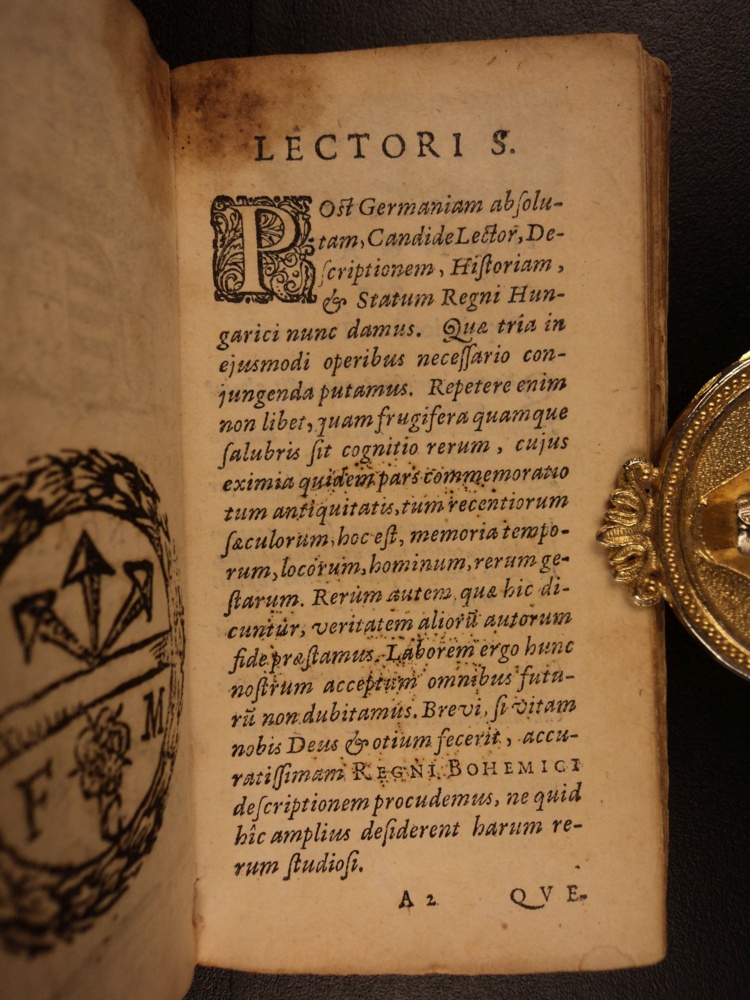 LECTORI S.
POst Germaniam absolu-
tam, Candide Lector, De-
scriptionem, Historiam,
& Statum Regni Hun-
garici nunc damus. Quæ tria in
ejusmodi operibus necessario con-
jungenda putamus. Repetere enim
non libet, quam frugifera quamque
salubris sit cognitio rerum, cujus
eximia quidem pars commemoratio
tum antiquitatis, tum recentiorum
sæculorum, hoc est, memoria tempo-
rum, locorum, hominum, rerum ge-
starum. Rerum autem, quæ hic di-
cuntur, veritatem aliorū autorum
fide præstamus. Laborem ergo hunc
nostrum acceptum omnibus futu-
rū non dubitamus. Brevi, si vitam
nobis Deus & otium fecerit, accu-
ratissimam REGNI BOHEMICI
descriptionem procudemus, ne quid
hîc amplius desiderent harum re-
rum studiosi.
A 2 QVE-
F M